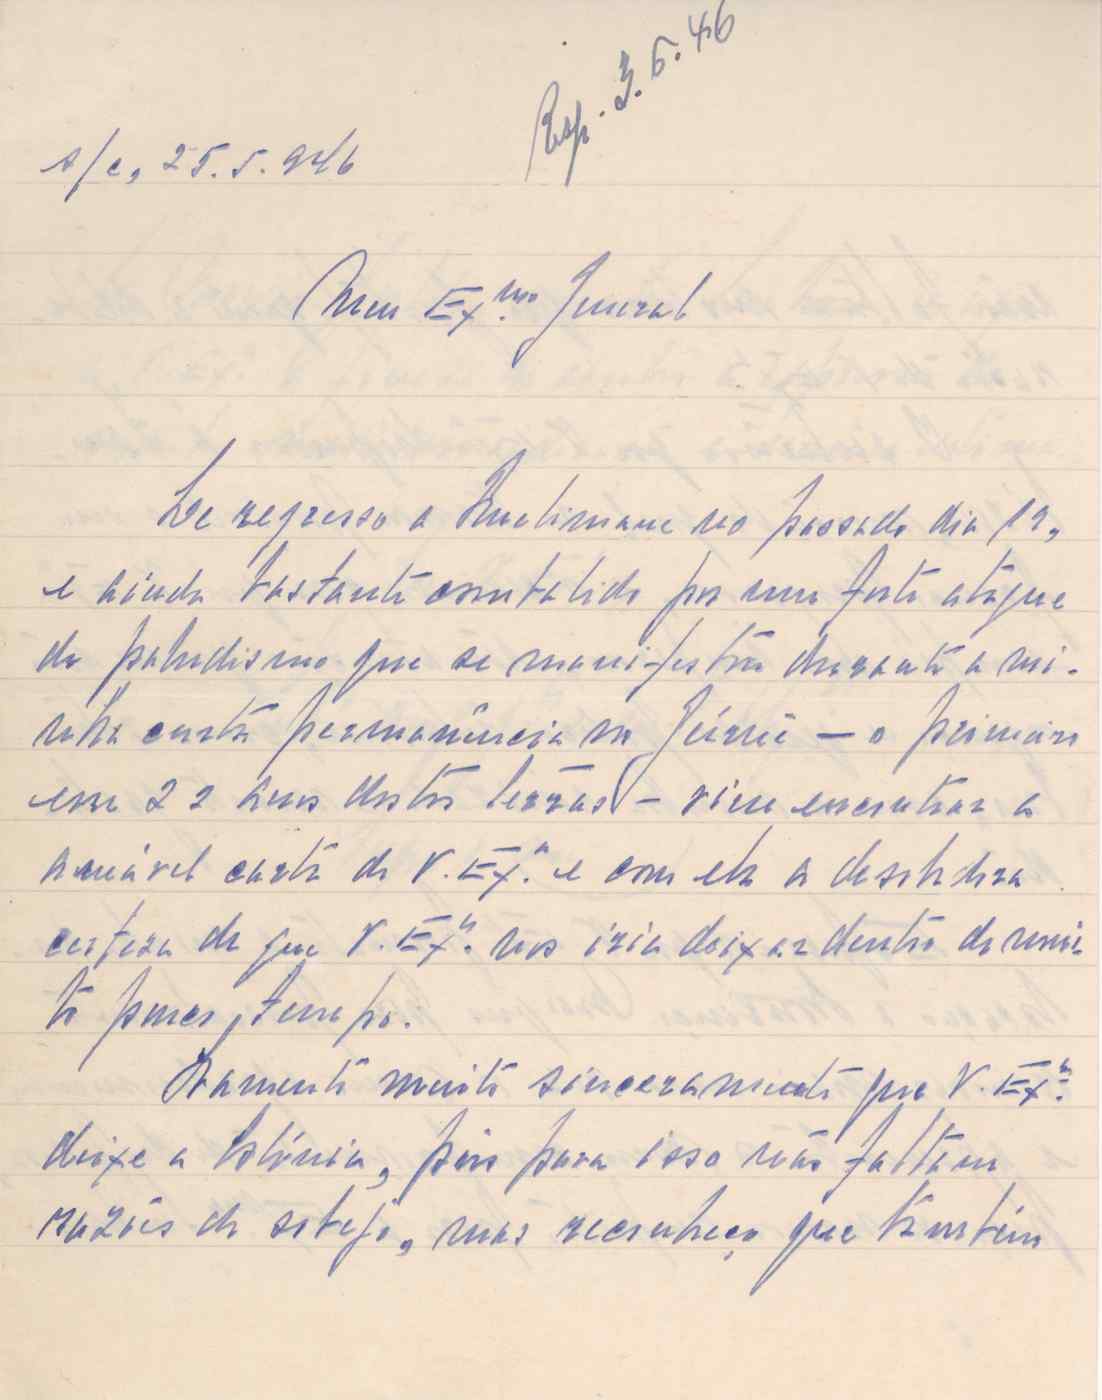 Resp. 3.6.46
s/c, 25.5.946
Meu Ex.mo General
De regresso a Quelimane no passado dia 19,
e ainda bastante combalido por um forte ataque
de paludismo que se manifestou durante a mi-
nha curta permanência no Gúruè — o primeiro
em 22 anos destas terras — vim encontrar a
amável carta de V. Ex.a e com ela a desoladora
certeza de que V. Ex.a nos iria deixar dentro de mui-
to pouco tempo.
Lamento muito sinceramente que V. Ex.a
deixe a Colónia, pois para isso não faltam
razões de sobejo, mas reconheço que também